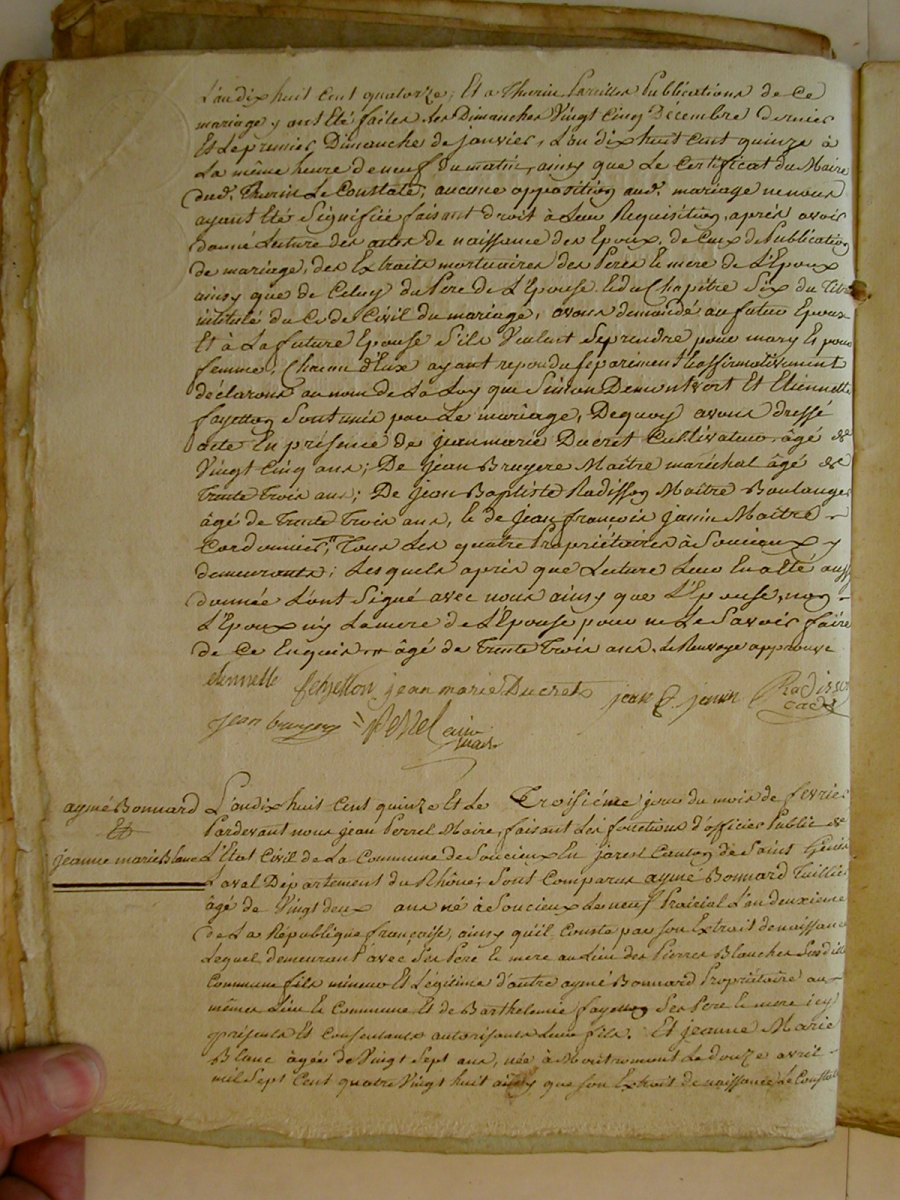 L'an dix huit cent quatorze; Et a Thurin Pareilles Publications de ce
mariage y ont été faites les Dimanches Vingt Cinq Décembre dernier
Et le premier Dimanche de janvier, L'an dix huit cent quinze à
La même heure de neuf du matin, ainsy que Le Certificat du Maire
dud. Thurin Le Constate; aucune opposition aud. mariage ne nous
ayant Eté Signifiée faisant droit à Leur Requisition, après avoir
donné Lecture des actes de naissance des Epoux, de Ceux de Publication
de mariage, des Extraits mortuaires des Peres & mere de L'Epoux
ainsy que de Celuy du Pere de L'Epouse & du Chapitre Six du Titre
intitulé du Code Civil du mariage, avons demandé au futur Epoux
Et à La future Epouse S'ils Veulent Se prendre pour mary Et pour
femme, Chacun d'Eux ayant repondu separément & affirmativement
déclarons au nom de La Loy que Simon Demontvert Et Etiennette
fayetton Sont unis par Le mariage, De quoy avons dressé
acte En présence de jean marie Ducret Cultivateur âgé de
Vingt Cinq ans; De jean Bruyere Maître maréchal âgé de
Trente Trois ans; De jean Baptiste Radisson Maître Boulanger
âgé de Trente Trois ans, & de jean françois janin Maître
Cordonnier, Tous Les quatre Propriétaires à Soucieux y
demeurants; Lesquels après que Lecture Leur En a été aussy
donnée L'ont Signé avec nous ainsy que L'Epouse, non
L'Epoux n'y La mere de L'Epouse pour ne Le Savoir faire
de Ce Enquis âgé de Trente Trois ans. Le Renvoye approuvé
etiennette fayetton jean marie Ducret jean f. janin Radisson
cadet
jean bruyere Perrel
maire
aymé Bonnard
Et
jeanne marie Blanc
L'an dix huit cent quinze Et Le Troisiéme jour du mois de fevrier
Pardevant nous jean Perrel Maire, faisant Les fonctions d'officier Public de
L'Etat Civil de La Commune de Soucieux En jarest Canton de Saint Genis
Laval Département du Rhône; Sont Comparus aymé Bonnard Tuillier
âgé de Vingt deux ans né à Soucieux Le neuf Prairial L'an deuxieme
de La République française, ainsy qu'il Conste par son Extrait de naissance
Lequel demeurant avec Ses Pere & mere au Lieu des Pierres Blanches Susditte
Commune fils mineur Et Légitime d'autre aymé Bonnard Propriétaire au
même Lieu & Commune Et de Barthelemie fayetton Ses Pere & mere icy
présents Et Consentants autorisants Leur fils. Et jeanne Marie
Blanc âgée de Vingt Sept ans, née à Montromont Le douze avril
mil Sept Cent quatre Vingt huit ainsy que son Extrait de naissance Le Constate